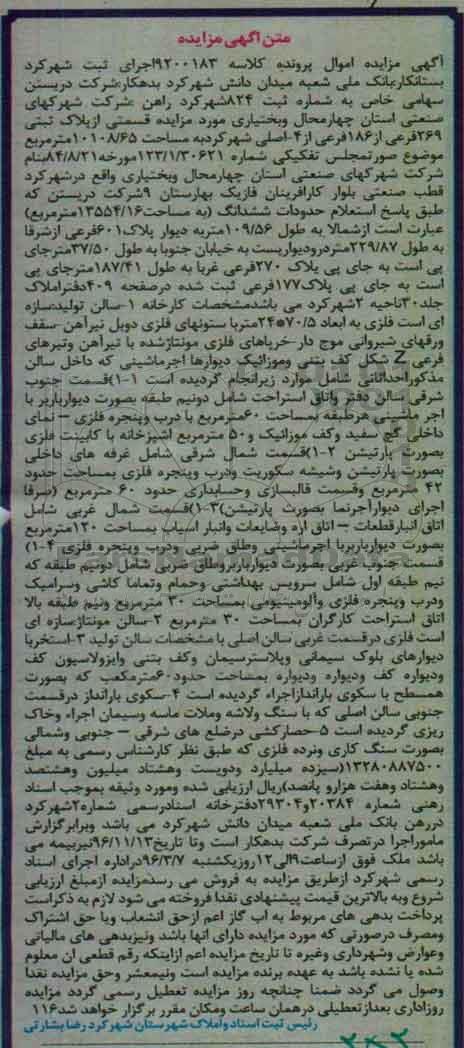 متن آگهی مزایده
آگهی مزایده اموال پرونده کلاسه ۹۲۰۰۱۸۳اجرای ثبت شهرکرد
بستانکار:بانک ملی شعبه میدان دانش شهرکرد بدهکار:شرکت دریستن
سهامی خاص به شماره ثبت ۸۲۴شهرکرد راهن :شرکت شهرکهای
صنعتی استان چهارمحال وبختیاری مورد مزایده قسمتی ازپلاک ثبتی
۲۶۹فرعی از۱۸۶فرعی از۴-اصلی شهرکردبه مساحت ۱۰۱۰۸/۶۵مترمربع
موضوع صورتمجلس تفکیکی شماره ۱۲۳/۱/۳۰۶۲۱مورخه۸۴/۸/۲۱بنام
شرکت شهرکهای صنعتی استان چهارمحال وبختیاری واقع درشهرکرد
قطب صنعتی بلوار کارافرینان فازیک بهارستان ۹شرکت دریستن که
طبق پاسخ استعلام حدودات ششدانگ (به مساحت۱۳۵۵۴/۱۶مترمربع)
عبارت است ازشمالا به طول ۱۰۹/۵۶متربه دیوار پلاک۶۰۱فرعی ازشرقا
به طول ۲۲۹/۸۷متردرودیواریست به خیابان جنوبا به طول ۳۷/۵۰مترجای
پی است به جای پی پلاک ۲۷۰فرعی غربا به طول ۱۸۷/۴۱مترجای پی
است به جای پی پلاک۱۷۷فرعی ثبت شده درصفحه ۴۰۹دفتراملاک
جلد۳۰ناحیه ۲شهرکرد می باشدمشخصات کارخانه ۱-سالن تولید:سازه
ای است فلزی به ابعاد ۷۰/۵*۲۴متربا ستونهای فلزی دوبل تیرآهن-سقف
ورقهای شیروانی موج دار-خرپاهای فلزی مونتاژشده با تیرآهن وتیرهای
فرعی Z شکل کف بتنی وموزائیک دیوارها آجرماشینی که داخل سالن
مذکوراحداثاتی شامل موارد زیرانجام گردیده است ۱-۱)قسمت جنوب
شرقی سالن دفتر واتاق استراحت شامل دونیم طبقه بصورت دیوارباربر با
آجر ماشینی هرطبقه بمساحت ۶۰مترمربع با درب وپنجره فلزی – نمای
داخلی گچ سفید وکف موزائیک و۵۰ مترمربع آشپزخانه با کابینت فلزی
بصورت پارتیشن ۲-۱)قسمت شمال شرقی شامل غرفه های داخلی
بصورت پارتیشن وشیشه سکوریت ودرب وپنجره فلزی بمساحت حدود
۴۲ مترمربع وقسمت قالبسازی وحسابداری حدود ۶۰ مترمربع (صرفا
اجرای دیوارآجرنما بصورت پارتیشن)۳-۱)قسمت شمال غربی شامل
اتاق انبارقطعات – اتاق اره وضایعات وانبار اسیاب بمساحت ۱۲۰مترمربع
بصورت دیوارباربربا آجرماشینی وطاق ضربی ودرب وپنجره فلزی ۴-۱)
قسمت جنوب غربی بصورت دیوارباربروطاق ضربی شامل دونیم طبقه که
نیم طبقه اول شامل سرویس بهداشتی وحمام وتماما کاشی وسرامیک
ودرب وپنجره فلزی وآلومینیومی بمساحت ۳۰ مترمربع ونیم طبقه بالا
اتاق استراحت کارگران بمساحت ۳۰ مترمربع ۲-سالن مونتاژ:سازه ای
است فلزی درقسمت غربی سالن اصلی با مشخصات سالن تولید ۳-استخربا
دیوارهای بلوک سیمانی وپلاسترسیمان وکف بتنی وایزولاسیون کف
ودیواره کف ودیواره ودیواره بمساحت حدود۶۰مترمکعب که بصورت
همسطح با سکوی باراندازاجراء گردیده است ۴-سکوی بارانداز درقسمت
جنوبی سالن اصلی که با سنگ ولاشه وملات ماسه وسیمان اجراء وخاک
ریزی گردیده است ۵-حصارکشی درضلع های شرقی – جنوبی وشمالی
بصورت سنگ کاری ونرده فلزی که طبق نظر کارشناس رسمی به مبلغ
۱۳۲۸۰۸۸۷۵۰۰(سیزده میلیارد ودویست وهشتاد میلیون وهشتصد
وهشتاد وهفت هزارو پانصد)ریال ارزیابی شده ومورد وثیقه بموجب اسناد
رهنی شماره ۲۰۳۸۴و۲۹۳۰۴دفترخانه اسنادرسمی شماره۲شهرکرد
دررهن بانک ملی شعبه میدان دانش شهرکرد می باشد وبرابرگزارش
ماموراجرا درتصرف شرکت بدهکار است وتا تاریخ۹۶/۱۱/۱۳تیربیمه می
باشد ملک فوق ازساعت۹الی۱۲روزیکشنبه ۹۶/۳/۷دراداره اجرای اسناد
رسمی شهرکرد ازطریق مزایده به فروش می رسدمزایده ازمبلغ ارزیابی
شروع وبه بالاترین قیمت پیشنهادی نقدا فروخته می شود لازم به ذکراست
پرداخت بدهی های مربوط به اب گاز اعم ازحق انشعاب ویا حق اشتراک
ومصرف درصورتی که مورد مزایده دارای انها باشد ونیزبدهی های مالیاتی
وعوارض وشهرداری وغیره تا تاریخ مزایده اعم ازاینکه رقم قطعی ان معلوم
شده یا نشده باشد به عهده برنده مزایده است ونیمعشر وحق مزایده نقدا
وصول می گردد ضمنا چنانچه روز مزایده تعطیل رسمی گردد مزایده
روزاداری بعدازتعطیلی درهمان ساعت ومکان مقرر برگزار خواهد شد۱۱۶
رئیس ثبت اسناد واملاک شهرستان شهرکرد رضا بشارتی
۲۸۲